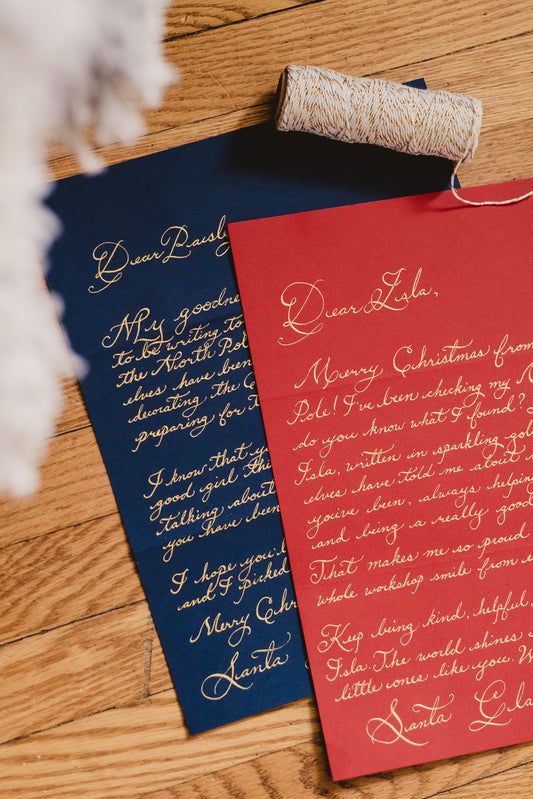 Dear Paisley
My goodne
to be writing to
the North Pol
elves have been
decorating the
preparing for
I know that y
good girl thi
talking about
you have been
I hope you'l
and I picked
Merry Chri
Santa
Dear Isla,
Merry Christmas from
Pole! I've been checking my N
do you know what I found?
Isla, written in sparkling gol
elves have told me about
you've been, always helpin
and being a really good
That makes me so proud
whole workshop smile from e
Keep being kind, helpful,
Isla. The world shines
little ones like you. W
Santa Cla